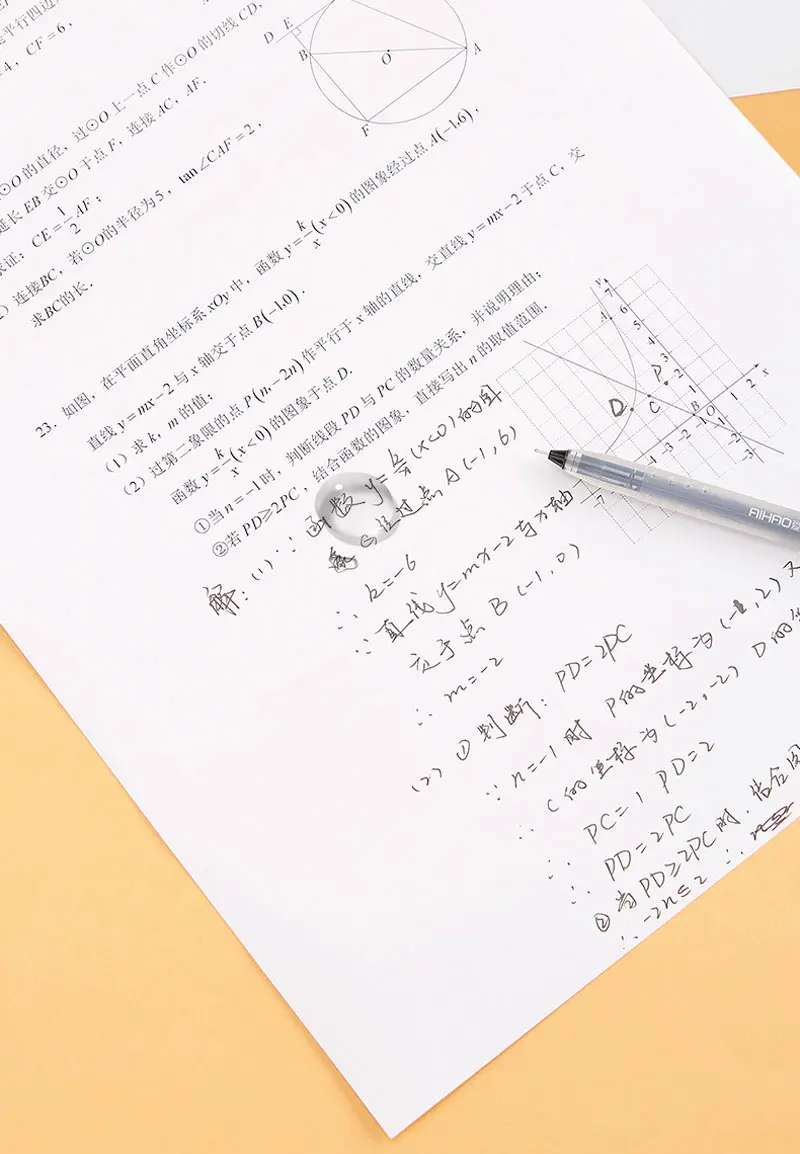 平行四边
4，CF=6，
⊙O的直径，过⊙O上一点C作⊙O的切线CD，
延长EB交⊙O于点F，连接AC，AF．
求证：CE=1/2AF；
）连接BC，若⊙O的半径为5，tan∠CAF=2，
求BC的长．
D E
B O A
F
23. 如图，在平面直角坐标系xOy中，函数y=k/x(x<0)的图象经过点A(-1,6)，
直线y=mx-2与x轴交于点B(-1,0)．
(1) 求k，m的值；
(2) 过第二象限的点P(n,-2n)作平行于x轴的直线，交直线y=mx-2于点C，交
函数y=k/x(x<0)的图象于点D．
①当n=-1时，判断线段PD与PC的数量关系，并说明理由；
②若PD≥2PC，结合函数的图象，直接写出n的取值范围．
y
7
A 6
5
4
3
P 2
D C 1
B O 1 2 x
-4 -3 -2
-2
-3
-7
解：(1)∵函数y=k/x(x<0)的图
经过点A(-1,6)
∴k=-6
∵直线y=mx-2与x轴
交于点B(-1,0)
∴m=-2
(2)①判断：PD=2PC
∵n=-1时 P的坐标为(-1,2)又
C的坐标为(-2,-2) D的坐
∴PC=1 PD=2
∴PD=2PC
②当PD≥2PC时，结合图
∴-2n≤2 ∴
AIHAO